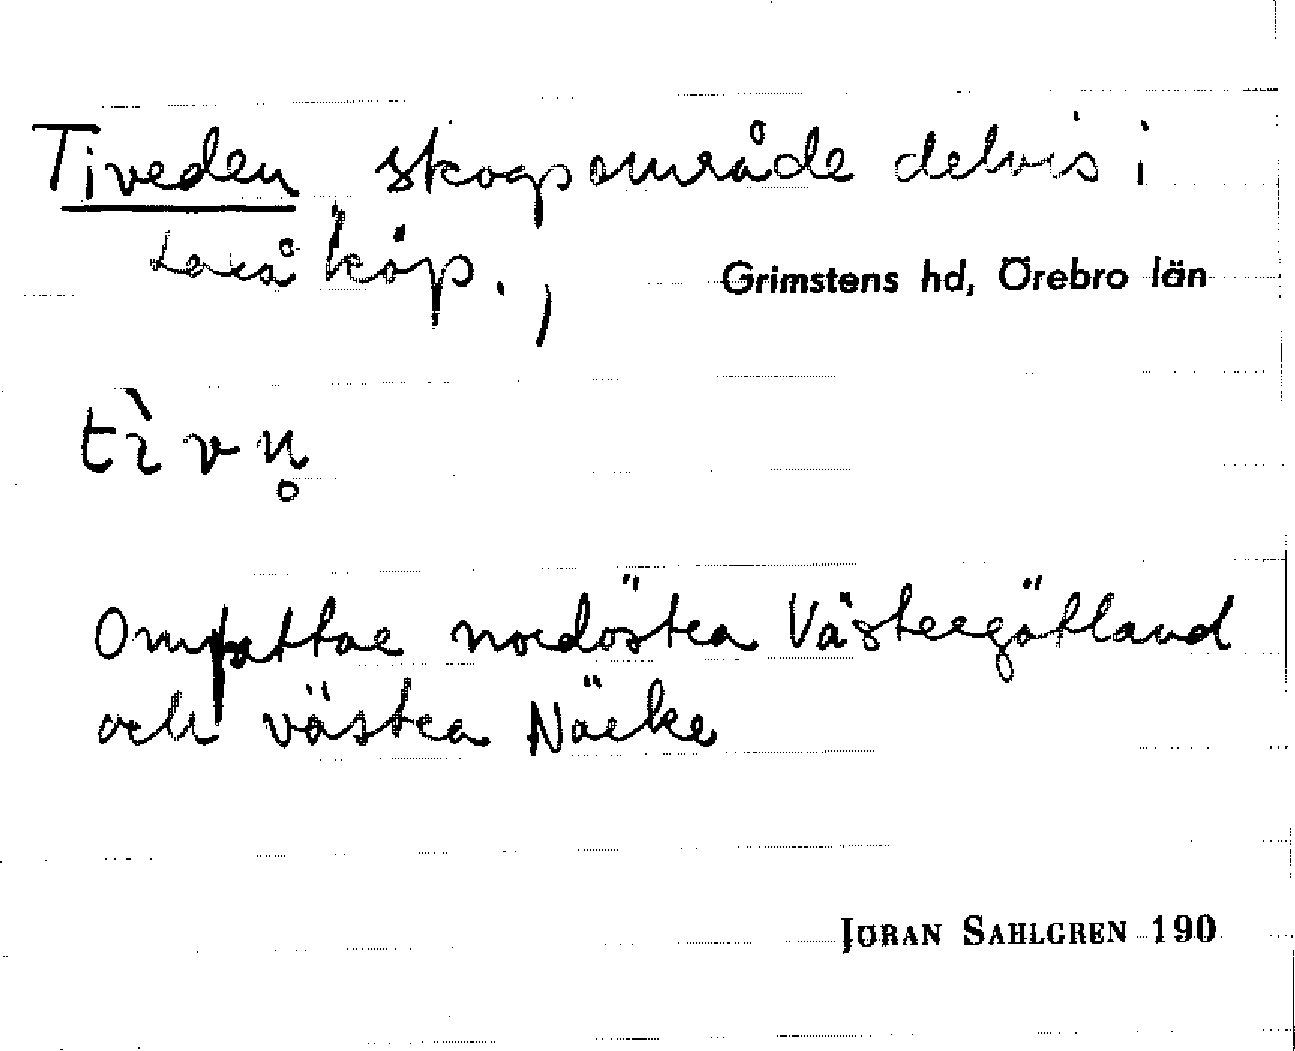 Tiveden skogsområde delvis i
Laxå köp.,
Grimstens hd, Örebro län
tìvn̥
Omfattar nordöstra Västergötland
och västra Närke
JÖRAN SAHLGREN 190